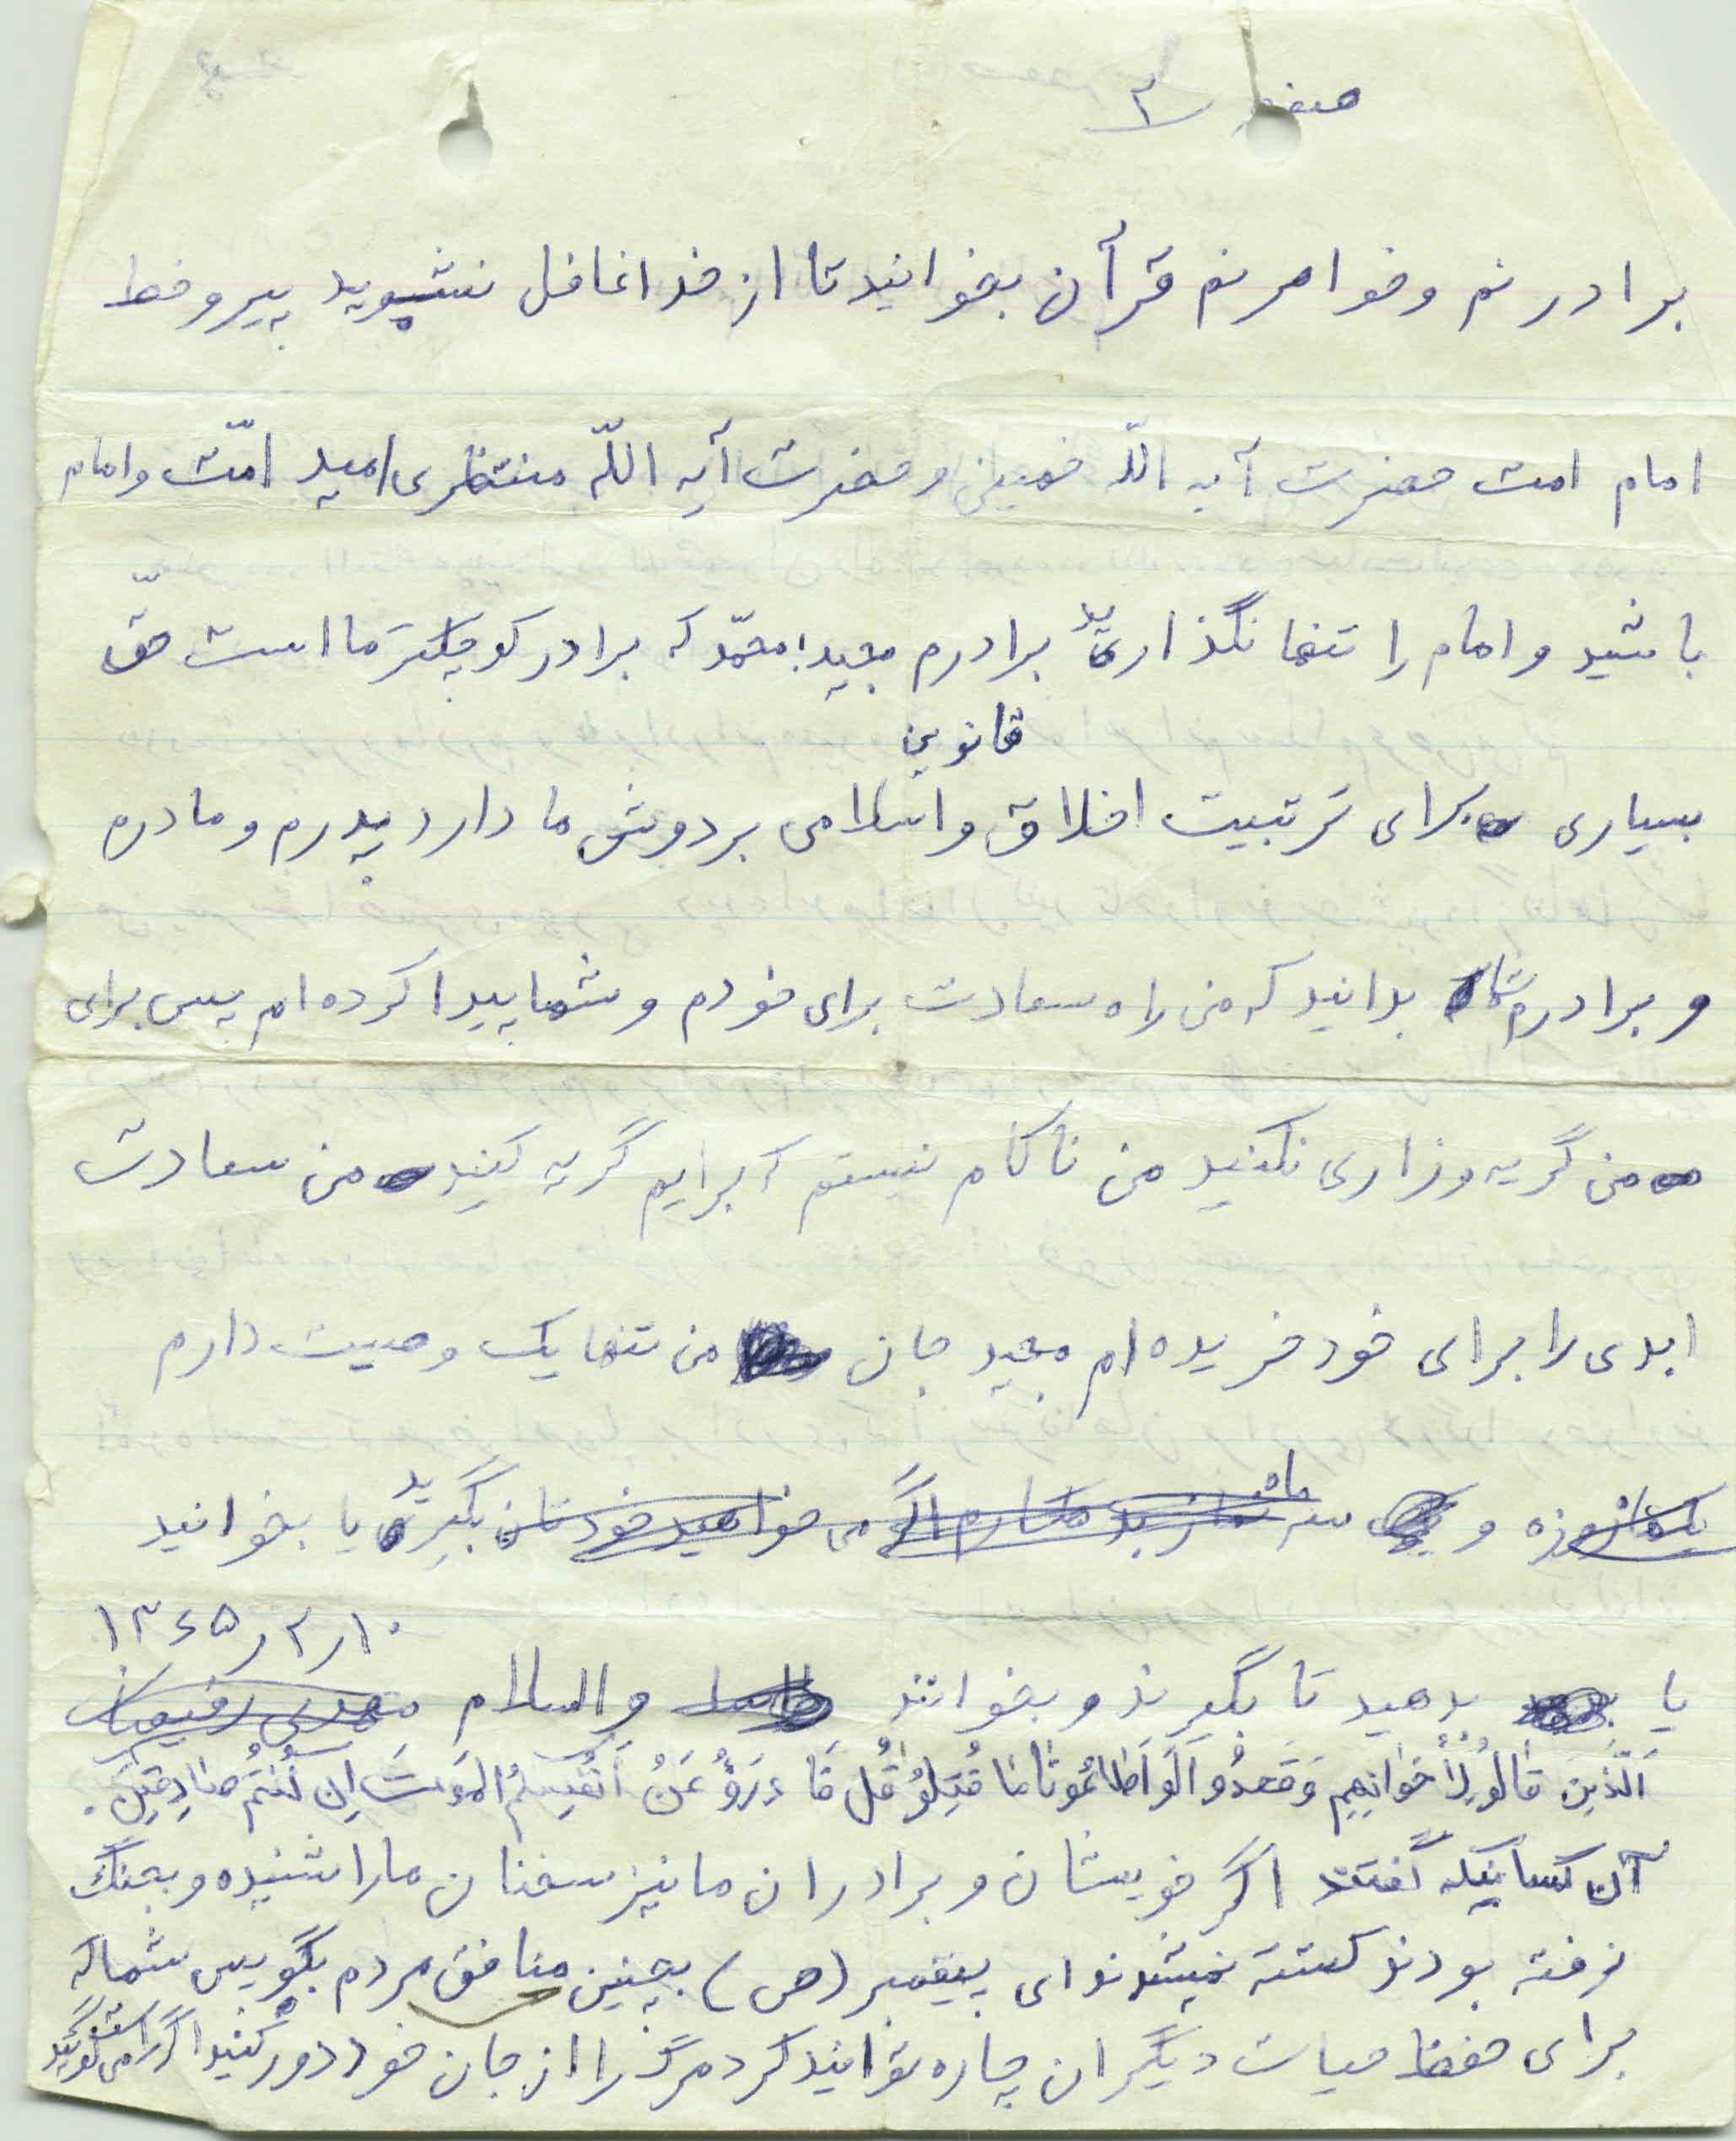 صفحه ۳
برادرنم و خواهرنم قرآن بخوانید تا از خدا غافل نشوید پیرو خط
امام امت حضرت آیه اللّه خمینی و حضرت آیه اللّه منتظری امید امّت و امام
باشید و امام را تنها نگذارید برادرم مجید؛ محمّد که برادر کوچکتر ما است حقّ
قانونی
بسیاری برای تربیت اخلاق و اسلامی بر دوش ما دارد پدرم و مادرم
و برادرم شما بدانید که من راه سعادت برای خودم و شما پیدا کرده ام پس برای
من گریه و زاری نکنید من ناکام نیستم که برایم گریه کنید من سعادت
ابدی را برای خود خریده ام مجید جان من تنها یک وصیت دارم
روزه و سه ماه نماز بدهکارم اگر می خواهید خودتان بگیرید یا بخوانید
۱۳۶۵ر۲ر۱۰
یا بدهید تا بگیرند و بخوانند والسلام مهدی
اَلَّذینَ قالوُ لِأخوانِهِم وَقَعَدُو الَوَ اَطاعُونا ما قُتِلوُ قُل فَا درَؤُ عَنْ اَنْفُسِکُمُ المَوتَ اِن کُنتُم صادِقینَ.
آن کسانیکه گفتند اگر خویشان و برادران ما نیز سخنان ما را شنیده و بجنگ
نرفته بودند کشته نمیشدند ای پیغمبر (ص) بچنین منافق مردم بگو پس شما که
برای حفظ حیات دیگران چاره توانید کرد مرگ را از جان خود دور کنید اگر راست می گوئید